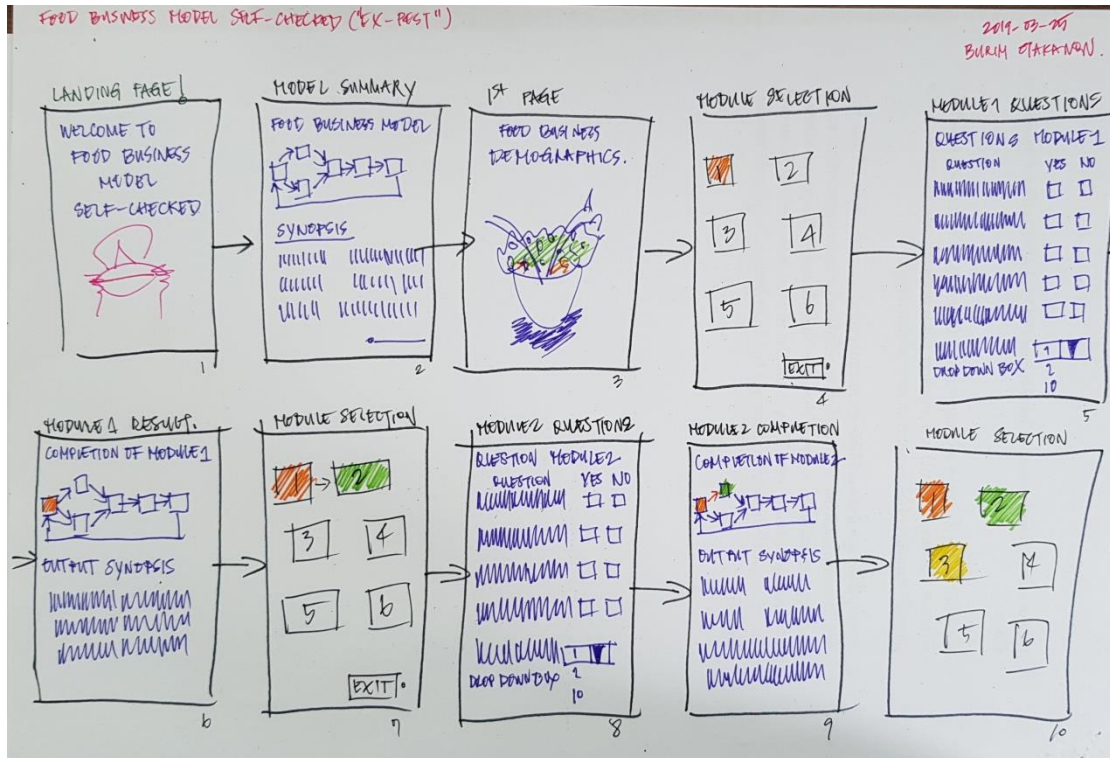 FOOD BUSINESS MODEL SELF-CHECKED ("EX-REST")
2019-03-25
LANDING PAGE!
WELCOME TO
FOOD BUSINESS
MODEL
SELF-CHECKED
1
MODEL SUMMARY
FOOD BUSINESS MODEL
SYNOPSIS
2
1ST PAGE
FOOD BUSINESS
DEMOGRAPHICS.
3
MODULE SELECTION
1 2
3 4
5 6
EXIT
4
MODULE1 QUESTIONS
QUESTIONS MODULE1
QUESTION YES NO
1
DROP DOWN BOX 2
10
5
MODULE1 RESULT.
COMPLETION OF MODULE1
OUTPUT SYNOPSIS
6
MODULE SELECTION
1 2
3 4
5 6
EXIT
7
MODULE2 QUESTIONS
QUESTION MODULE2
QUESTION YES NO
1
DROP DOWN BOX 2
10
8
MODULE2 COMPLETION
COMPLETION OF MODULE2
OUTPUT SYNOPSIS
9
MODULE SELECTION
1 2
3 4
5 6
10